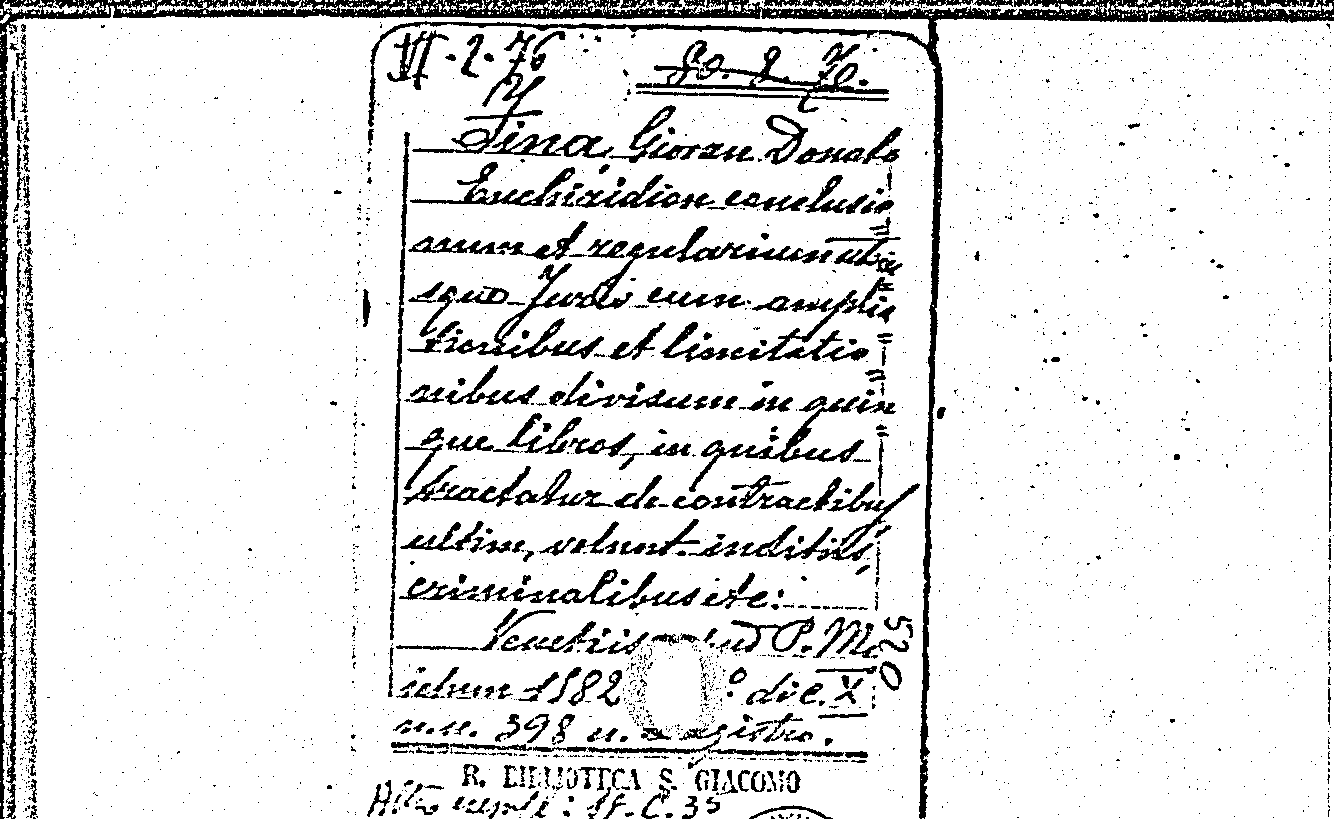 VI.2.76
80. 2. 70.
Fina, Giovan Donato
Enchiridion conclusio
num et regularium utriu
sque Juris cum amplia
tionibus et limitatio
nibus divisum in quin
que libros, in quibus
tractatur de contractibus,
ultim, volunt. inditiis,
criminalibus etc:
Venetiis apud P. Ma
ietum 1582 : die. X
n.n. 398 n. registro.
520
R. BIBLIOTECA S. GIACOMO